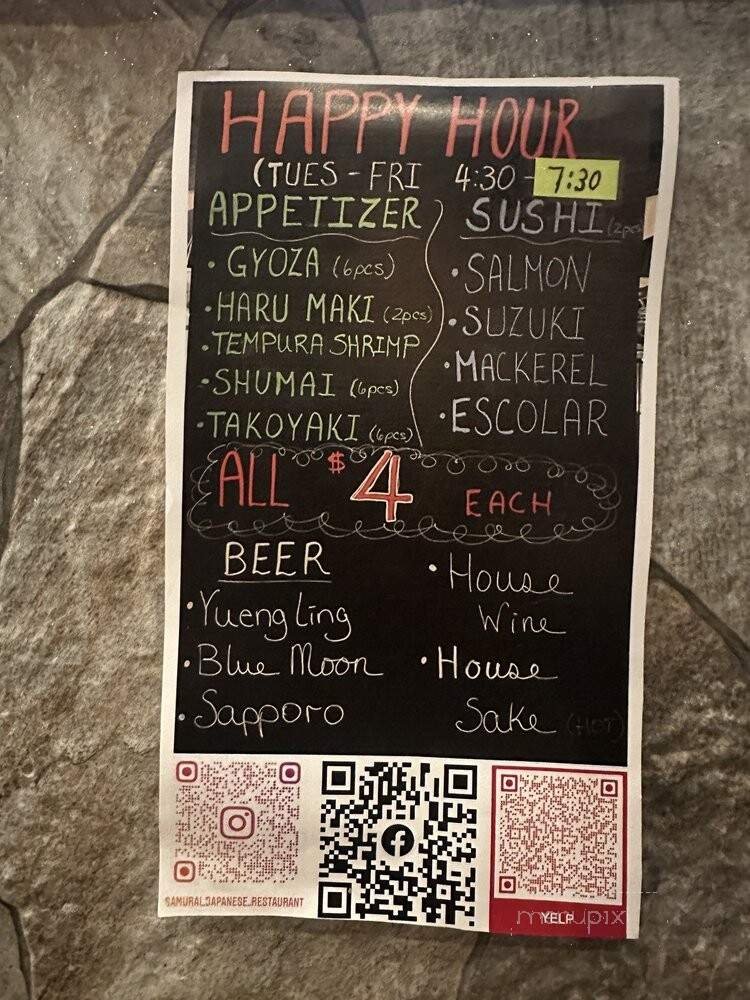 HAPPY HOUR
(TUES - FRI 4:30 - 7:30
APPETIZER
• GYOZA (6pcs)
• HARU MAKI (2pcs)
• TEMPURA SHRIMP
• SHUMAI (6pcs)
• TAKOYAKI (6pcs)
SUSHI (2pcs
• SALMON
• SUZUKI
• MACKEREL
• ESCOLAR
ALL $4 EACH
BEER
• Yueng Ling
• Blue Moon
• Sapporo
• House
Wine
• House
Sake (HOT)
SAMURAI.JAPANESE.RESTAURANT
YELP
menupix